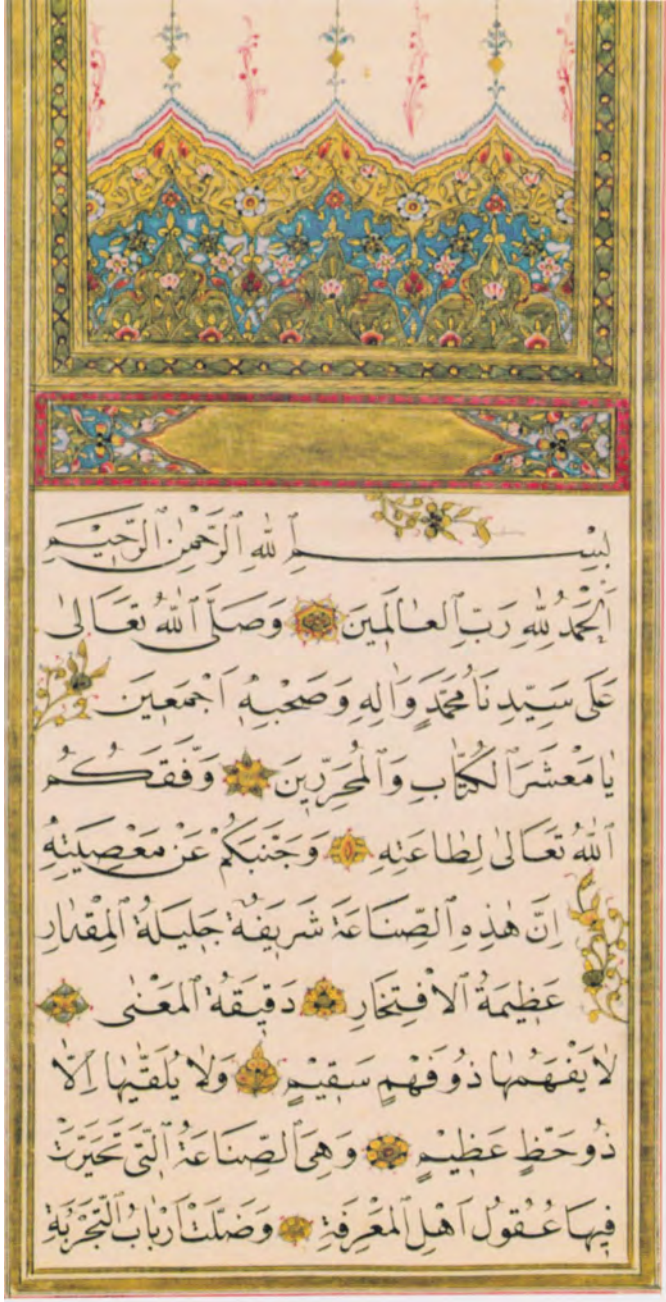 بِسْمِ ٱللهِ ٱلرَّحْمٰنِ ٱلرَّحِيْمِ
اَلْحَمْدُ لِلّٰهِ رَبِّ ٱلعَالَمِينَ وَصَلَّى ٱللّٰهُ تَعَالٰى
عَلٰى سَيِّدِنَا مُحَمَّدٍ وَاٰلِهِ وَصَحْبِهِ اَجْمَعِينَ
يَا مَعْشَرَ ٱلكُتَّابِ وَٱلْمُحَرِّرِينَ وَفَّقَكُمُ
ٱللّٰهُ تَعَالٰى لِطَاعَتِهِ وَجَنَّبَكُمْ عَنْ مَعْصِيَتِهِ
اِنَّ هٰذِهِ ٱلصِّنَاعَةَ شَرِيفَةٌ جَلِيلَةُ ٱلْمِقْدَارِ
عَظِيمَةُ ٱلاْفْتِخَارِ دَقِيقَةُ ٱلمَعْنٰى
لَا يَفْهَمُهَا ذُو فَهْمٍ سَقِيْمٍ وَلَا يُلَقّٰيهَا اِلَّا
ذُو حَظٍّ عَظِيْمٍ وَهِيَ ٱلصِّنَاعَةُ ٱلَّتِي تَحَيَّرَتْ
فِيهَا عُقُولُ اَهْلِ ٱلمَعْرِفَةِ وَضَلَّتْ اَرْبَابُ ٱلتَّجْرِبَةِ